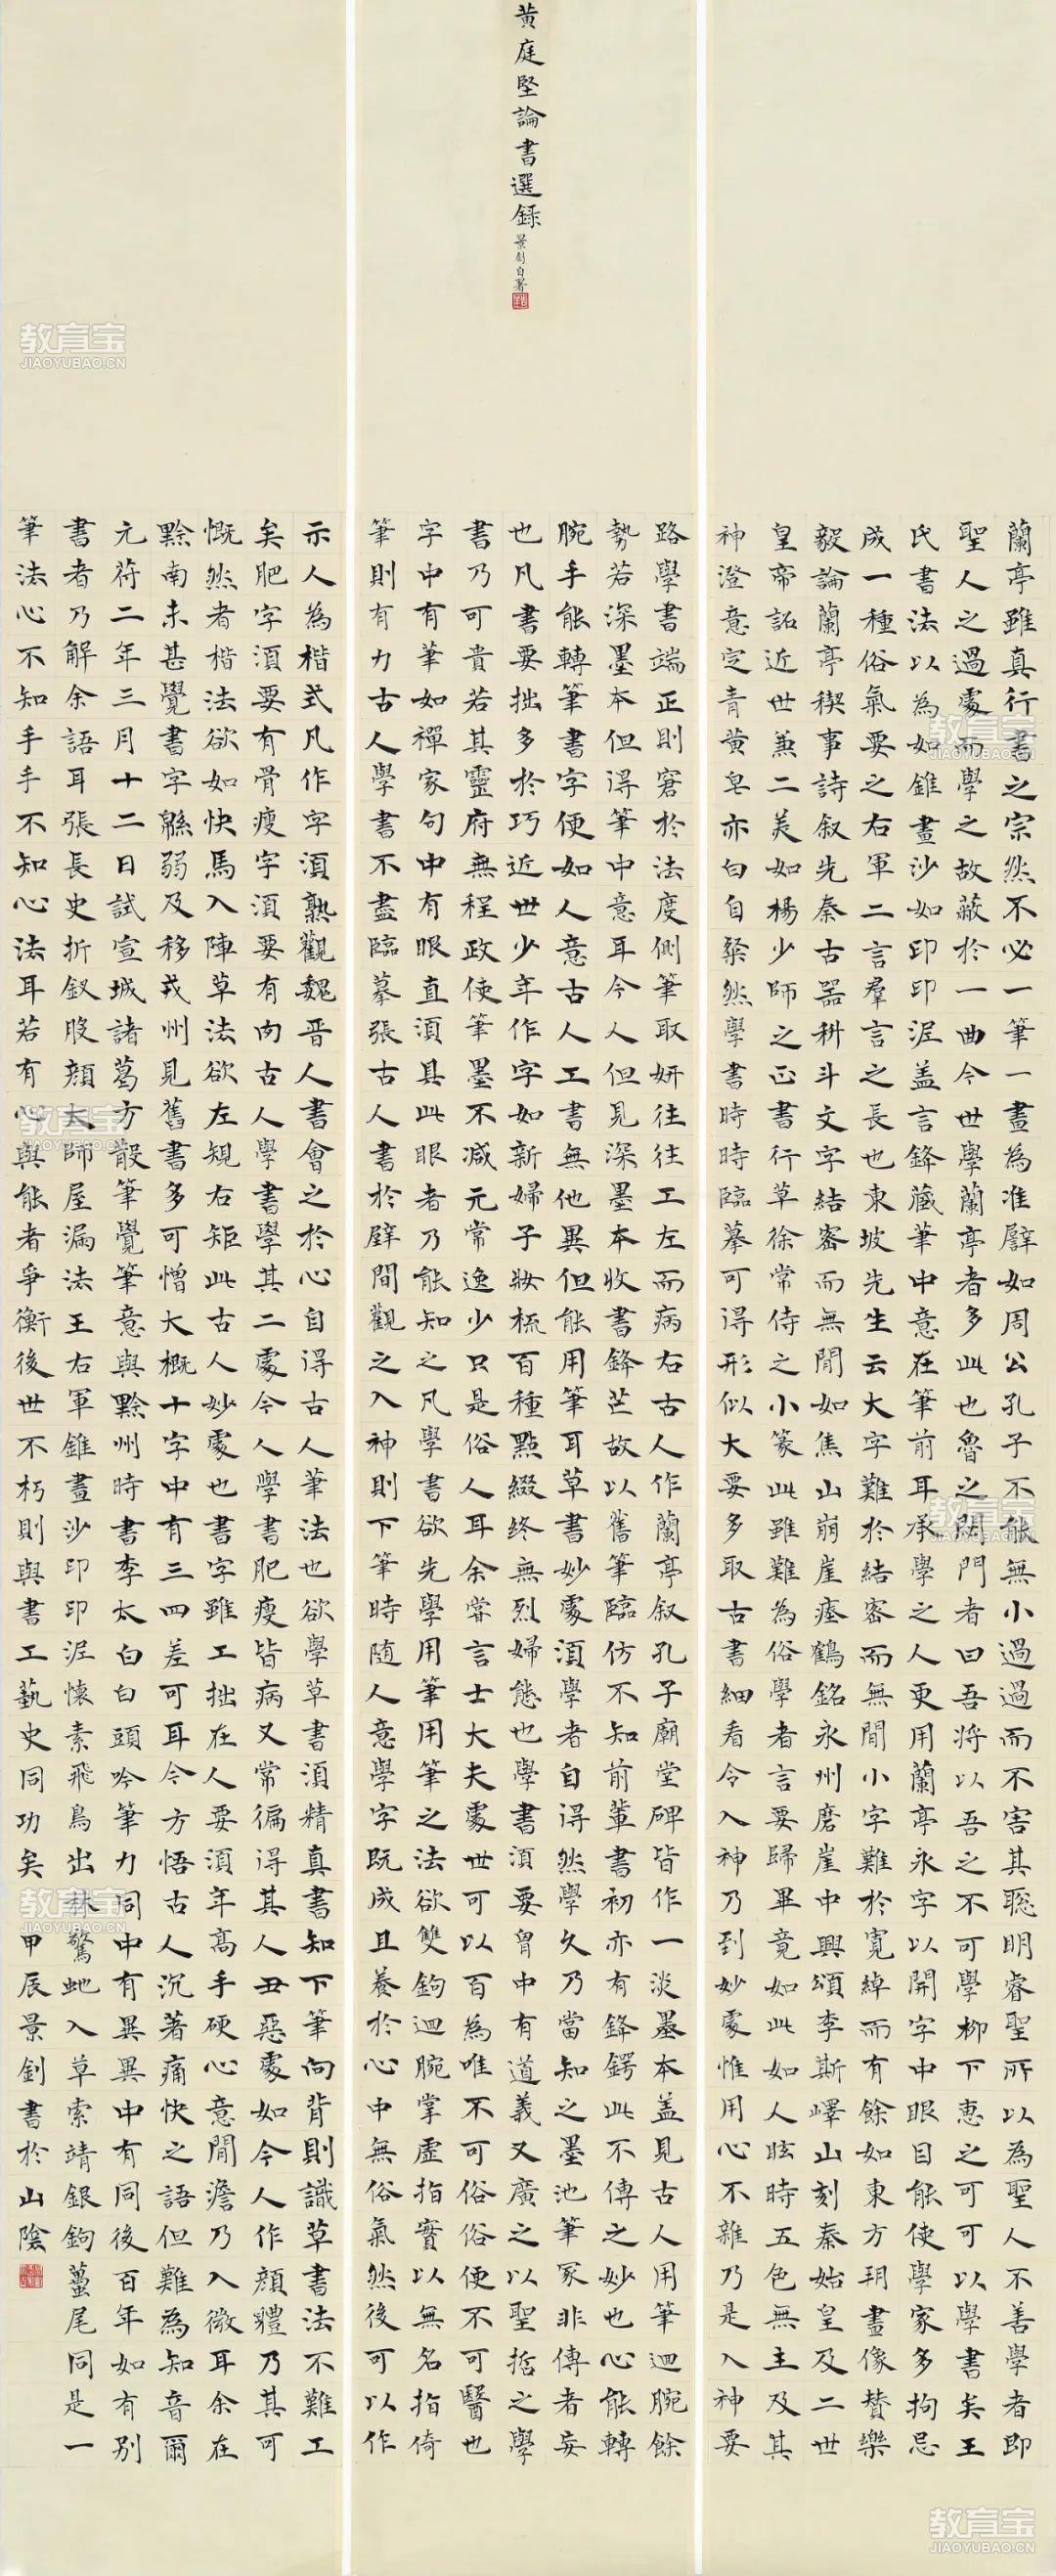 黃庭堅論書選録
景釗自署
蘭亭雖真行書之宗然不必一筆一畫為准譬如周公孔子不能無小過過而不害其聡明睿聖所以為聖人不善學者即
聖人之過處而學之故蔽於一曲今世學蘭亭者多此也魯之閉門者曰吾將以吾之不可學柳下惠之可可以學書矣王
氏書法以為如錐畫沙如印印泥盖言鋒藏筆中意在筆前耳承學之人更用蘭亭永字以開字中眼目能使學家多拘忌
成一種俗氣要之右軍二言羣言之長也東坡先生云大字難於結密而無間小字難於寬綽而有餘如東方玥畫像賛樂
毅論蘭亭稧事詩叙先秦古器科斗文字結密而無間如焦山崩崖瘞鶴銘永州磨崖中興頌李斯嶧山刻秦始皇及二世
皇帝詔近世兼二美如楊少師之正書行草徐常侍之小篆此雖難為俗學者言要歸畢竟如此如人眩時五色無主及其
神澄意定青黄皂亦白自粲然學書時時臨摹可得形似大要多取古書細看令入神乃到妙處惟用心不雜乃是入神要
路學書端正則窘於法度側筆取妍往往工左而病右古人作蘭亭叙孔子廟堂碑皆作一淡墨本盖見古人用筆迴腕餘
勢若深墨本但得筆中意耳今人但見深墨本收書鋒芒故以舊筆臨仿不知前輩書初亦有鋒鍔此不傳之妙也心能轉
腕手能轉筆書字便如人意古人工書無他異但能用筆耳草書妙處須學者自得然學久乃當知之墨池筆冢非傳者妄
也凡書要拙多於巧近世少年作字如新婦子妝梳百種點綴終無烈婦態也學書須要胷中有道義又廣之以聖哲之學
書乃可貴若其靈府無程政使筆墨不減元常逸少只是俗人耳余嘗言士大夫處世可以百為唯不可俗俗便不可醫也
字中有筆如禪家句中有眼直須具此眼者乃能知之凡學書欲先學用筆用筆之法欲雙鉤迴腕掌虛指實以無名指倚
筆則有力古人學書不盡臨摹張古人書於壁間觀之入神則下筆時随人意學字既成且養於心中無俗氣然後可以作
示人為楷式凡作字須熟觀魏晋人書會之於心自得古人筆法也欲學草書須精真書知下筆向背則識草書法不難工
矣肥字須要有骨瘦字須要有肉古人學書學其二處今人學書肥瘦皆病又常徧得其人丑惡處如今人作顔體乃其可
慨然者楷法欲如快馬入陣草法欲左規右矩此古人妙處也書字雖工拙在人要須年高手硬心意閒澹乃入微耳余在
黔南未甚覺書字緜弱及移戎州見舊書多可憎大概十字中有三四差可耳今方悟古人沉著痛快之語但難為知音爾
元符二年三月十二日試宣城諸葛方散筆覺筆意與黔州時書李太白白頭吟筆力同中有異異中有同後百年如有别
書者乃解余語耳張長史折釵股顔太師屋漏法王右軍錐畫沙印印泥懷素飛鳥出林驚虵入草索靖銀鉤蠆尾同是一
筆法心不知手手不知心法耳若有心與能者爭衡後世不朽則與書工藝史同功矣甲辰景釗書於山陰
教育宝
JIAOYUBAO.CN
教育宝
JIAOYUBAO.CN
教育宝
JIAOYUBAO.CN
教育宝
JIAOYUBAO.CN
教育宝
JIAOYUBAO.CN
教育宝
JIAOYUBAO.CN